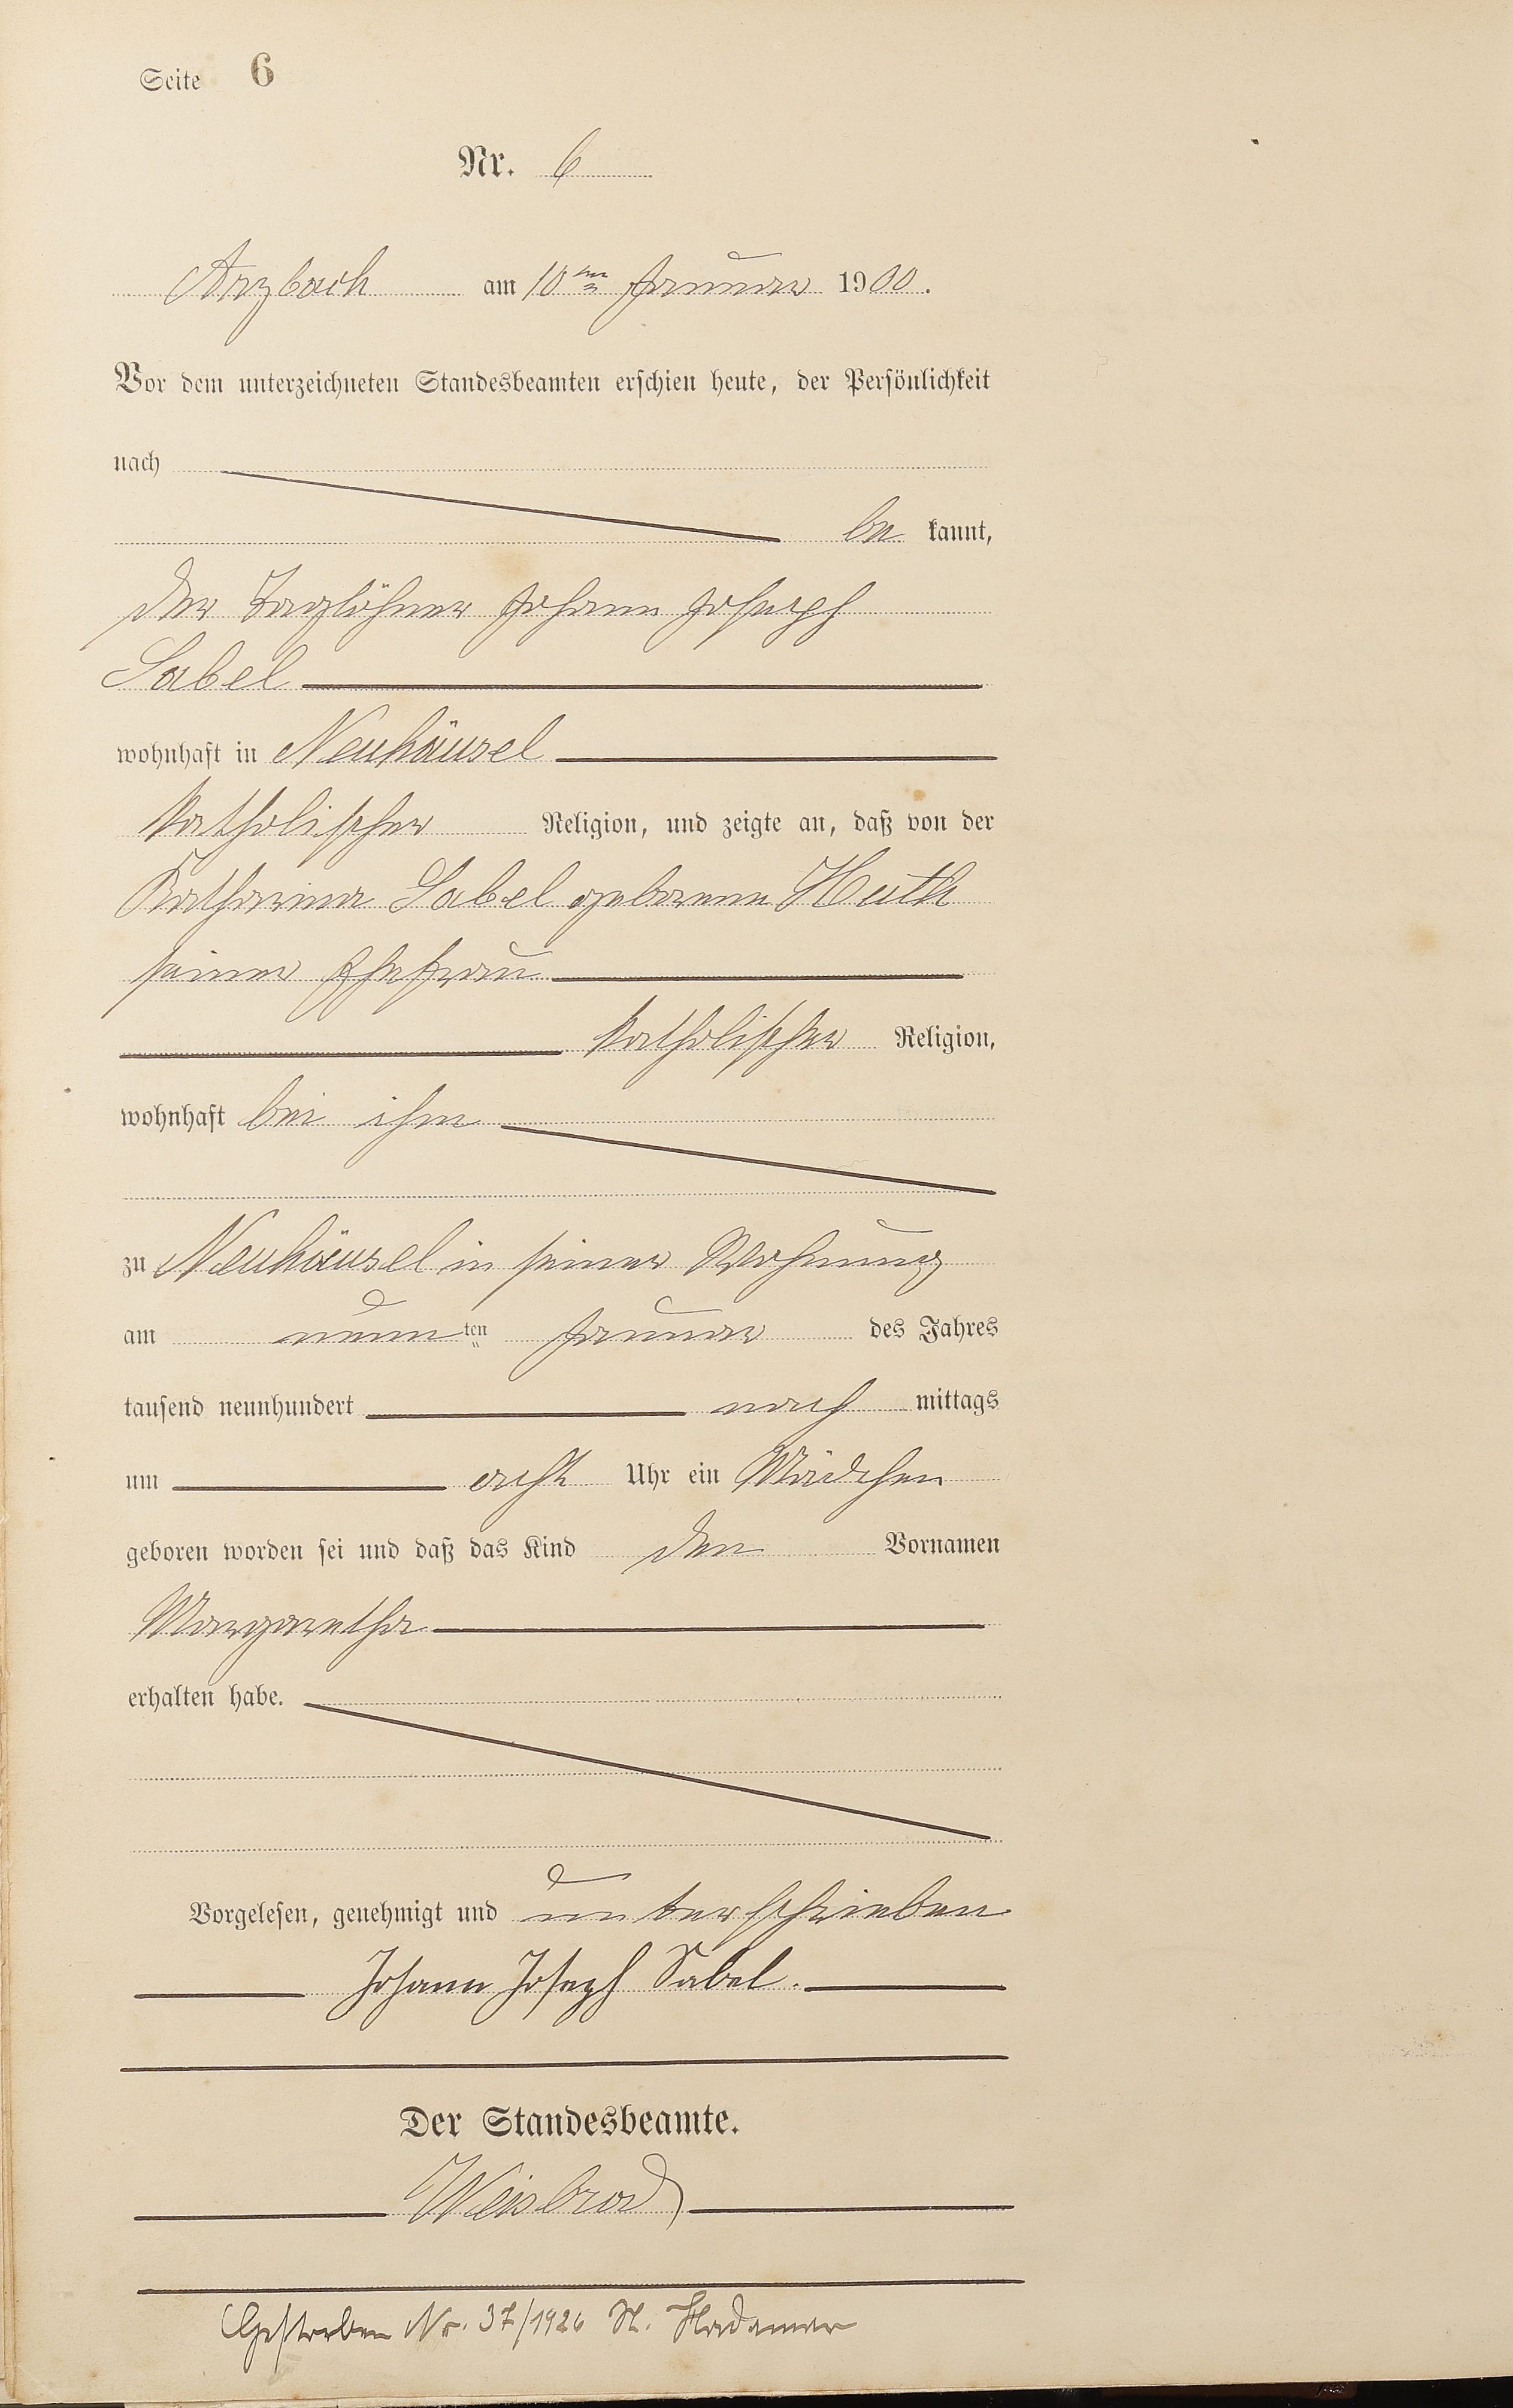 Seite 6
Nr. 6
Arzbach am 10ten Januar 1900.
Vor dem unterzeichneten Standesbeamten erschien heute, der Persönlichkeit
nach
be kannt,
der Taglöhner Johann Joseph
Sabel
wohnhaft in Neuhäusel
katholischer Religion, und zeigte an, daß von der
Katharina Sabel geborenen Huth
seiner Ehefrau
katholischer Religion,
wohnhaft bei ihm
zu Neuhäusel in seiner Wohnung
am neunten Januar des Jahres
tausend neunhundert nach mittags
um acht Uhr ein Mädchen
geboren worden sei und daß das Kind den Vornamen
Margaretha
erhalten habe.
Vorgelesen, genehmigt und unterschrieben
Johann Joseph Sabel.
Der Standesbeamte.
Weisbrod
Gestorben Nr. 37/1926 St. Hadamar